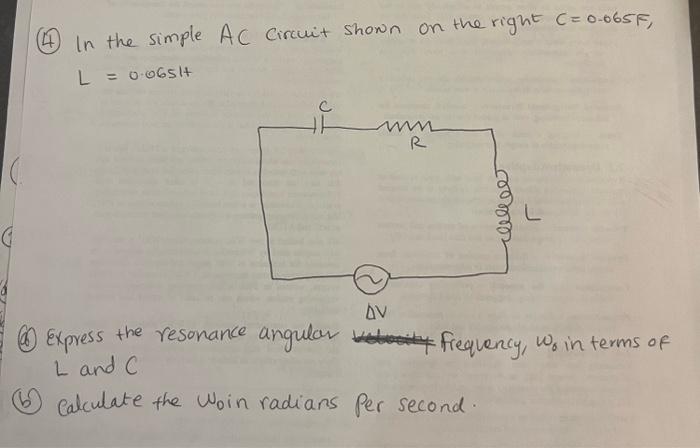 ④ In the simple AC Circuit shown on the right C = 0.065F,
L = 0.065H
C
R
L
ΔV
ⓐ Express the resonance angular velocity frequency, W₀ in terms of
L and C
ⓑ Calculate the W₀ in radians per second.